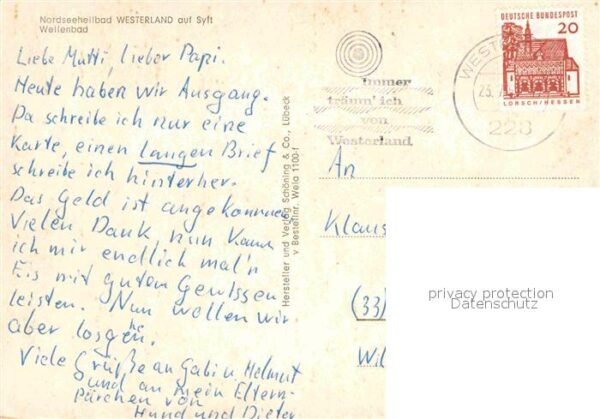 Nordseeheilbad WESTERLAND auf Sylt
Wellenbad
Liebe Mutti, lieber Papi.
Heute haben wir Ausgang.
Da schreibe ich nur eine
Karte, einen langen Brief
schreibe ich hinterher.
Das Geld ist angekommen
Vielen Dank nun kann
ich mir endlich mal'n
Eis mit guten Gewissen
leisten. Nun wollen wir
aber losgehe.
Viele Grüße an Gabi u Helmut
und an mein Eltern-
pärchen von
Hund und Dieter
Hersteller und Verlag Schöning & Co., Lübeck
v Bestellnr. Wela 1100-f
immer
träum' ich
von
Westerland
DEUTSCHE BUNDESPOST
20
LORSCH/HESSEN
WEST
23.
228
An
Klaus
(33)
Wil
privacy protection
Datenschutz